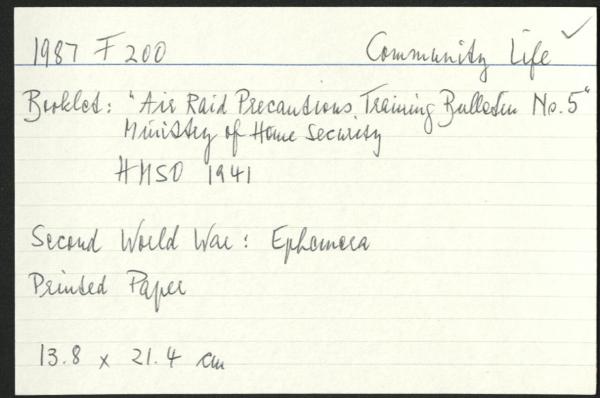 1987 F 200 Community Life ✓
Booklet: "Air Raid Precautions, Training Bulletin No. 5"
Ministry of Home Security
HMSO 1941
Second World War: Ephemera
Printed Paper
13.8 x 21.4 cm